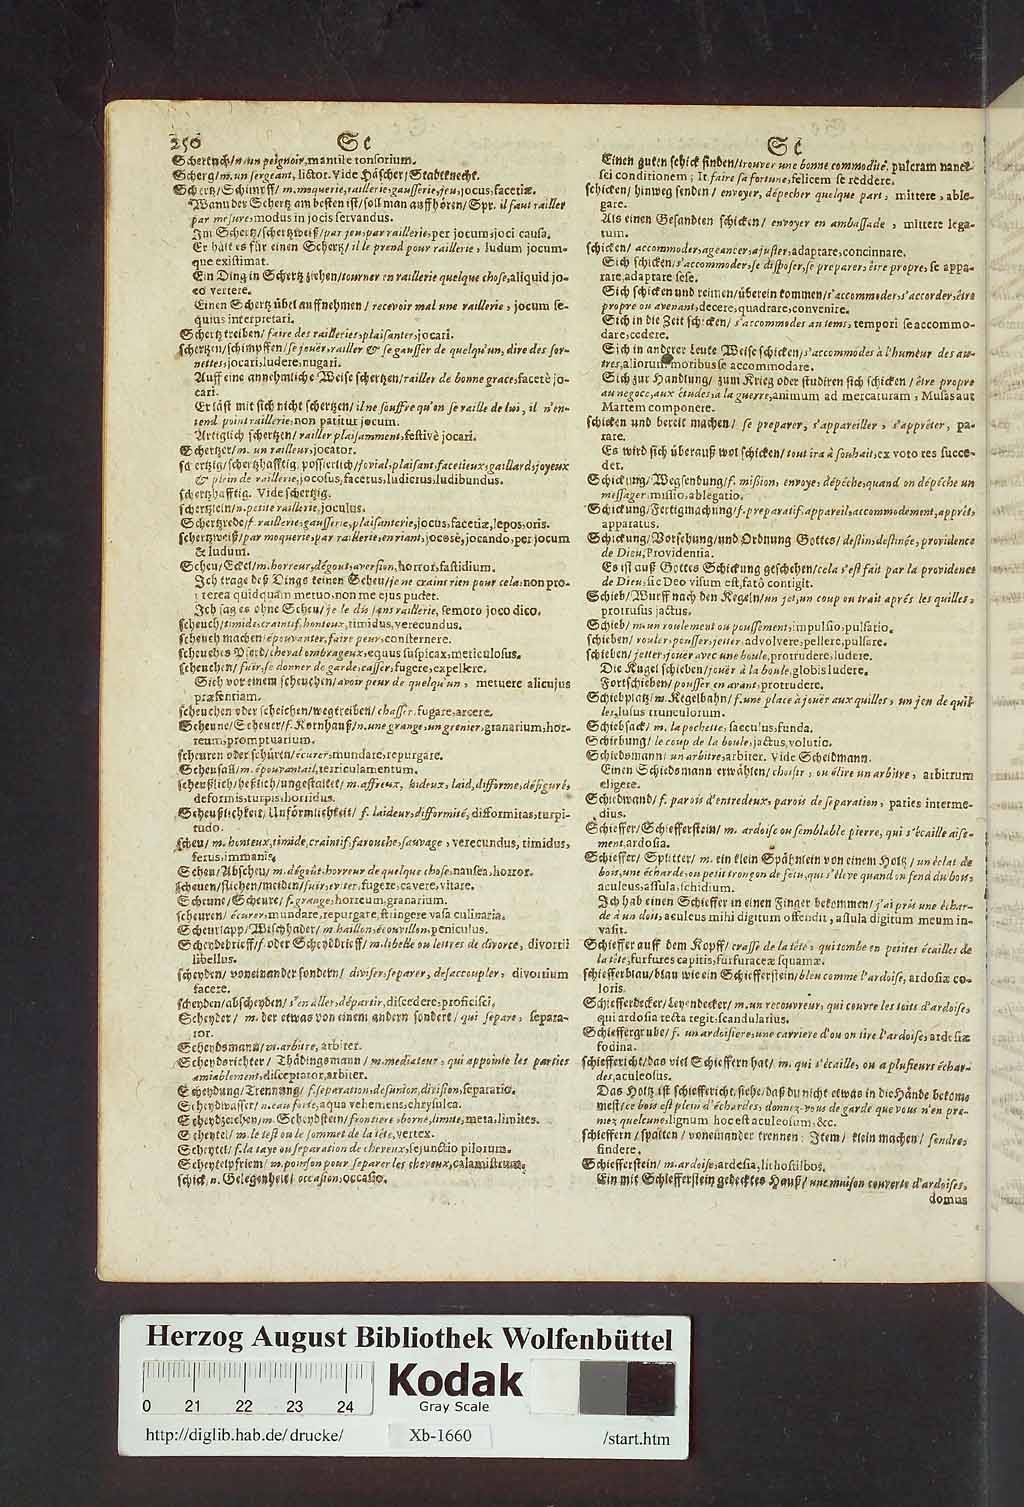 250 Sc Sc
Schertuch/ n. un peignoir, mantile tonsorium.
Scherg/ m. un sergeant, lictor. Vide Häscher/ Stadtknecht.
Schertz/ Schimpff/ m. moquerie, raillerie, gausserie, jeu, jocus, facetiæ.
Wann der Schertz am besten ist/ soll man auffhören/ Spr. il faut railler
par mesure, modus in jocis servandus.
Im Schertz/ schertzweiß/ par jeu, par raillerie, per jocum, joci causa.
Er hält es für einen Schertz/ il le prend pour raillerie, ludum jocum-
que existimat.
Ein Ding in Schertz ziehen/ tourner en raillerie quelque chose, aliquid jo-
co vertere.
Einen Schertz übel auffnehmen/ recevoir mal une raillerie, jocum se-
quius interpretari.
Schertz treiben/ faire des railleries, plaisanter, jocari.
schertzen/ schimpffen/ se jouër, railler & se gausser de quelqu'un, dire des sor-
nettes, jocari, ludere, nugari.
Auff eine annehmliche Weise schertzen/ railler de bonne grace, facetè jo-
cari.
Er läst mit sich nicht schertzen/ il ne souffre qu'on se raille de lui, il n'en-
tend point raillerie, non patitur jocum.
Artiglich schertzen/ railler plaisamment, festivè jocari.
Schertzer/ m. un railleur, jocator.
schertzig/ schertzhafftig, possierlich/ jovial, plaisant, facetieux, gaillard, joyeux
& plein de raillerie, jocosus, facetus, ludicrus, ludibundus.
schertzhafftig. Vide schertzig.
schertzlein/ n. petite raillerie, joculus.
Schertzrede/ f. raillerie, gausserie, plaisanterie, jocus, facetiæ, lepos, oris.
schertzweiß/ par moquerie, par raillerie, en riant, jocosè, jocando, per jocum
& ludum.
Scheu/ Eckel/ m. horreur, dégout, aversion, horror, fastidium.
Ich trage deß Dings keinen Scheu/ je ne crains rien pour cela, non pro-
pterea quidquam metuo, non me ejus pudet.
Ich sag es ohne Scheu/ je le dis sans raillerie, semoto joco dico.
scheuch/ timide, craintif, honteux, timidus, verecundus.
scheuch machen/ épouvanter, faire peur, consternere.
scheuches Pferd/ cheval ombrageux, equus suspicax, meticulosus.
scheuchen/ fuir, se donner de garde, casser, fugere, expellere.
Sich vor einem scheuchen/ avoir peur de quelqu'un, metuere alicujus
præsentiam.
scheuchen oder scheichen/ wegtreiben/ chasser, fugare, arcere.
Scheune/ Scheuer/ f. Kornhauß/ n. une grange, un grenier, granarium, hor-
reum, promptuarium.
scheuren oder schüren/ écurer, mundare, repurgare.
Scheusal/ m. épouvantail, terriculamentum.
scheußlich/ heßlich/ ungestaltet/ m. affreux, hideux, laid, difforme, défiguré,
deformis, turpis, horridus.
Scheußlichkeit/ Unförmlichkeit/ f. laideur, difformité, difformitas, turpi-
tudo.
scheu/ m. honteux, timide, craintif, farouche, sauvage, verecundus, timidus,
ferus, immanis.
Scheu/ Abscheu/ m. dégoût, horreur de quelque chose, nausea, horror.
scheuen/ fliehen/ meiden/ fuir, eviter, fugere, cavere, vitare.
Scheune/ Scheure/ f. grange, horreum, granarium.
scheuren/ écurer, mundare, repurgare, stringere vasa culinaria.
Scheurlapp/ Wischhader/ m. haillon, écouvillon, peniculus.
Scheydebrieff/ f. oder Scheydbrieff/ m. libelle ou lettres de divorce, divortii
libellus.
scheyden/ voneinander sondern/ diviser, separer, desaccoupler, divortium
facere.
scheyden/ abscheyden/ s'en aller, départir, discedere, proficisci.
Scheyder/ m. der etwas von einem andern sondert/ qui separe, separa-
tor.
Scheydsmann/ m. arbitre, arbiter.
Scheydsrichter/ Thädingsmann/ m. mediateur, qui appointe les parties
amiablement, disceptator, arbiter.
Scheydung/ Trennung/ f. separation, desunion, division, separatio.
Scheydwasser/ n. eau forte, aqua vehemens, chrysulca.
Scheydzeichen/ m. Scheydstein/ frontiere, borne, limite, meta, limites.
Scheytel/ m. le test ou le sommet de la tête, vertex.
Scheytel/ f. la raye ou separation de cheveux, sejunctio pilorum.
Scheytelpfriem/ m. poinson pour separer les cheveux, calamistrum.
schick, n. Gelegenheit/ occasion, occasio.
Einen guten schick finden/ trouver une bonne commodité, pulcram nanc-
sci conditionem; It. faire sa fortune, felicem se reddere.
schicken/ hinweg senden/ envoyer, dépecher quelque part, mittere, able-
gare.
Als einen Gesandten schicken/ envoyer en ambassade, mittere lega-
tum.
schicken/ accommoder, ageancer, ajuster, adaptare, concinnare.
Sich schicken/ s'accommoder, se disposer, se preparer, être propre, se appa-
rare, adaptare sese.
Sich schicken und reimen/ überein kommen/ s'accommoder, s'accorder, être
propre ou avenant, decere, quadrare, convenire.
Sich in die Zeit schicken/ s'accommodes au tems, tempori se accommo-
dare, cedere.
Sich in anderer Leute Weise schicken/ s'accommodes à l'humeur des au-
tres, aliorum moribus se accommodare.
Sich zur Handlung/ zum Krieg oder studiren sich schicken/ être propre
au negoce, aux études, a la guerre, animum ad mercaturam, Musas aut
Martem componere.
schicken und bereit machen/ se preparer, s'appareiller, s'apprêter, pa-
rare.
Es wird sich überauß wol schicken/ tout ira à souhait, ex voto res succe-
det.
Schickung/ Wegsendung/ f. mission, envoye, dépêche, quand on dépêche un
messager, missio, ablegatio.
Schickung/ Fertigmachung/ f. preparatif, appareil, accommodement, apprêt,
apparatus.
Schickung/ Vorsehung/ und Ordnung Gottes/ destin, destinée, providence
de Dieu, Providentia.
Es ist auß Gottes Schickung geschehen/ cela s'est fait par la providence
de Dieu, sic Deo visum est, fatô contigit.
Schieb/ Wurff nach den Kegeln/ un jet, un coup ou trait aprés les quilles,
protrusus jactus.
Schieb/ m. un roulement ou poussement, impulsio, pulsatio.
schieben/ rouler, pousser, jetter, advolvere, pellere, pulsare.
schieben/ jetter, jouer avec une boule, protrudere, ludere.
Die Kugel schieben/ jouër à la boule, globis ludere.
Fortschieben/ pousser en avant, protrudere.
Schiebplatz/ m. Kegelbahn/ f. une place à jouër aux quilles, un jeu de quil-
les, lusus trunculorum.
Schiebsack/ m. la pochette, sacculus, funda.
Schiebung/ le coup de la boule, jactus, volutio.
Schiedsmann/ un arbitre, arbiter. Vide Scheidmann.
Einen Schiedsmann erwählen/ choisir, ou élire un arbitre, arbitrum
eligere.
Schiedwand/ f. parois d'entredeux, parois de separation, paries interme-
dius.
Schieffer/ Schiefferstein/ m. ardoise ou semblable pierre, qui s'écaille aise-
ment, ardosia.
Schieffer/ Splitter/ m. ein klein Spähnlein von einem Holtz/ un éclat de
bois, une écharde, ou petit tronçon de fêtu, qui s'élève quand on fend du bois,
aculeus, assula, schidium.
Ich hab einen Schieffer in einen Finger bekommen/ j'ai pris une échar-
de à un doit, aculeus mihi digitum offendit, assula digitum meum in-
vasit.
Schieffer auff dem Kopff/ crasse de la tête, qui tombe en petites écailles de
la tête, furfures capitis, furfuraceæ squamæ.
schieffer blau/ blau wie ein Schieferstein/ bleu comme l'ardoise, ardosiæ co-
loris.
Schiefferdecker/ Leyendecker/ m. un recouvreur, qui couvre les toits d'ardoise,
qui ardosia tecta tegit, scandularius.
Schieffergrube/ f. un ardoisiere, une carriere d'ou on tire l'ardoise, ardosiæ
fodina.
schieffericht/ das viel Schieffern hat/ m. qui s'écaille, ou a plusieurs échar-
des, aculeosus.
Das Holtz ist schieffericht, siehe/ daß du nicht etwas in die Hände bekom-
mest/ ce bois est plein d'échardes, donnez-vous de garde que vous n'en pre-
niez quelcune, lignum hoc est aculeosum, &c.
schieffern/ spalten/ voneinander trennen: Item/ klein machen/ fendre,
findere.
Schiefferstein/ m. ardoise, ardesia, lithostilbos.
Ein mit Schiefferstein gedecktes Hauß/ une maison couverte d'ardoises,
domus
Herzog August Bibliothek Wolfenbüttel
Kodak
Gray Scale
0 21 22 23 24
http://diglib.hab.de/drucke/ Xb-1660 /start.htm